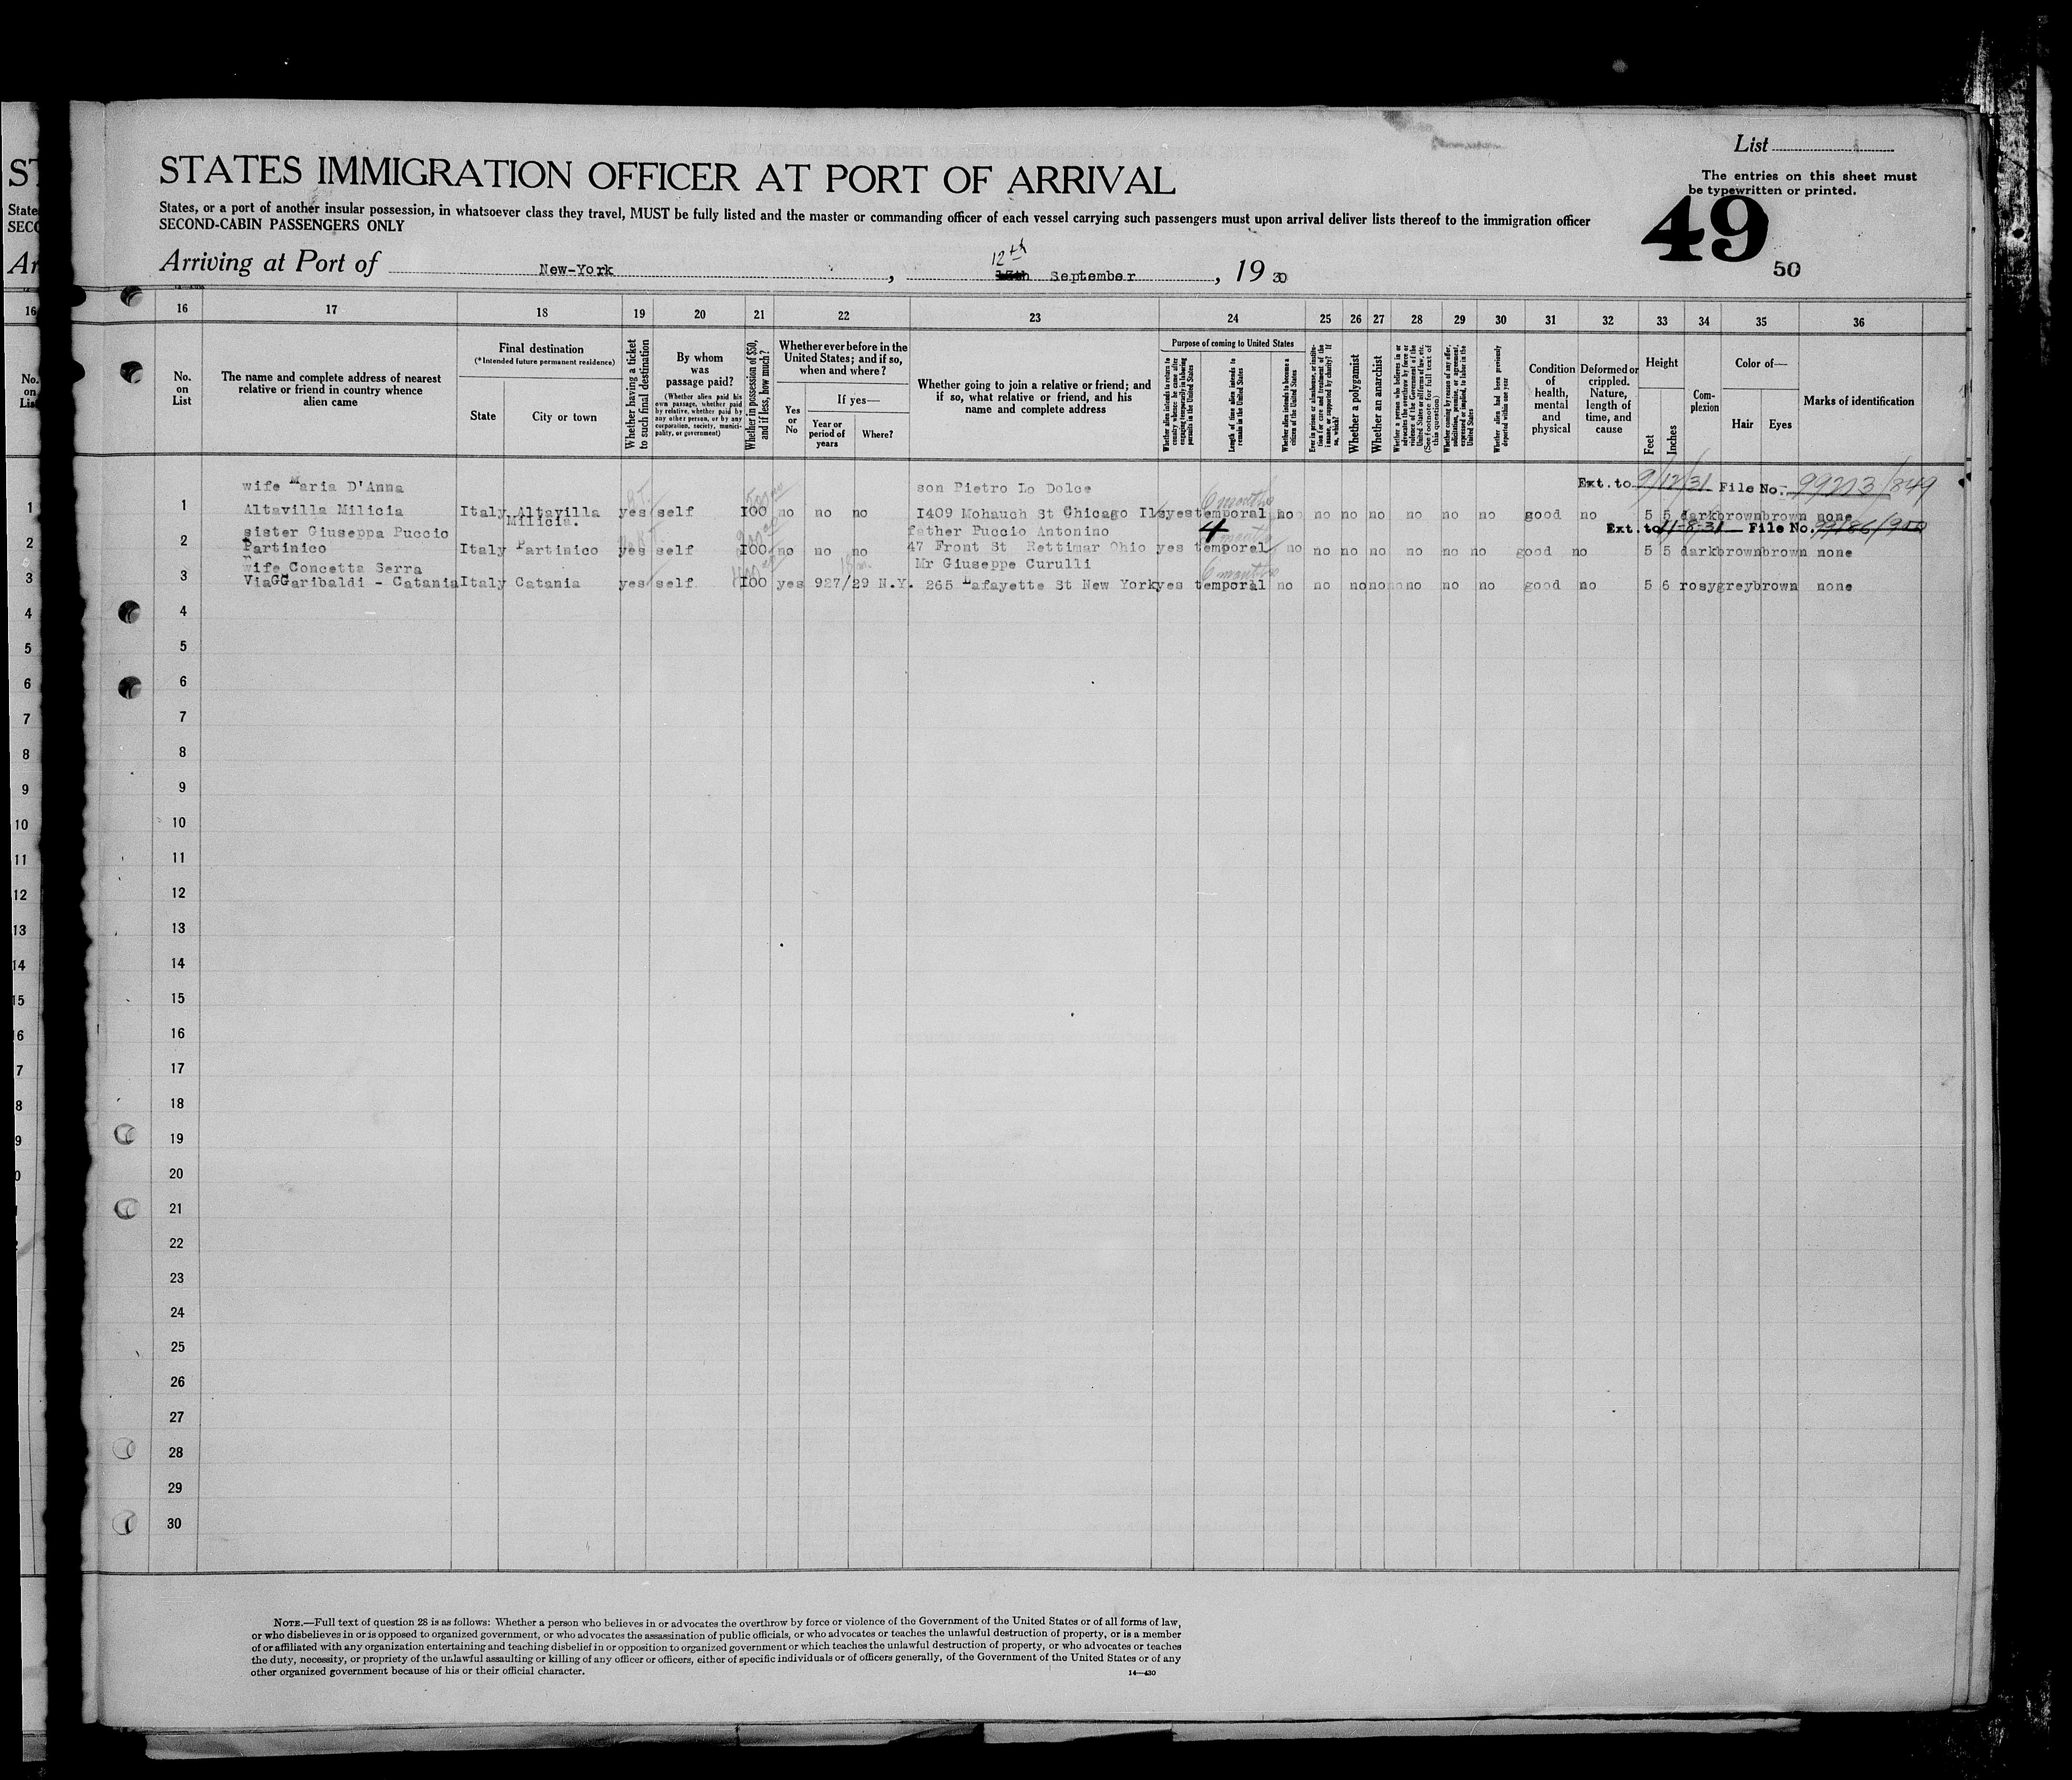 List
The entries on this sheet must
be typewritten or printed.
STATES IMMIGRATION OFFICER AT PORT OF ARRIVAL
States, or a port of another insular possession, in whatsoever class they travel, MUST be fully listed and the master or commanding officer of each vessel carrying such passengers must upon arrival deliver lists thereof to the immigration officer
SECOND-CABIN PASSENGERS ONLY
49
50
Arriving at Port of New-York, 12th September, 19 30
16 17 18 19 20 21 22 23 24 25 26 27 28 29 30 31 32 33 34 35 36
No. on List
The name and complete address of nearest relative or friend in country whence alien came
Final destination
(*Intended future permanent residence)
State
City or town
Whether having a ticket to such final destination
By whom was passage paid?
(Whether alien paid his own passage, whether paid by relative, whether paid by any other person, or by any corporation, society, municipality, or government)
Whether in possession of $50, and if less, how much?
Whether ever before in the United States; and if so, when and where?
Yes or No
If yes—
Year or period of years
Where?
Whether going to join a relative or friend; and if so, what relative or friend, and his name and complete address
Purpose of coming to United States
Whether alien intends to return to country whence he came after engaging temporarily in laboring pursuits in the United States
Length of time alien intends to remain in the United States
Whether alien intends to become a citizen of the United States
Ever in prison or almshouse, or institution for care and treatment of the insane, or supported by charity? If so, which?
Whether a polygamist
Whether an anarchist
Whether a person who believes in or advocates the overthrow by force or violence of the Government of the United States or all forms of law, etc. (See footnote for full text of this question)
Whether coming by reason of any offer, solicitation, promise, or agreement, expressed or implied, to labor in the United States
Whether alien had been previously deported within one year
Condition of health, mental and physical
Deformed or crippled. Nature, length of time, and cause
Height
Feet
Inches
Complexion
Color of—
Hair
Eyes
Marks of identification
wife Maria D'Anna son Pietro Lo Dolce 6 months Ext. to 9/12/31 File No. 99203/849
1 Altavilla Milicia Italy Altavilla Milicia. yes self 100 no no no 1409 Mohauch St Chicago Ils yes temporal no no no no no no no good no 5 5 dark brown brown none
sister Giuseppa Puccio father Puccio Antonino 4 Ext. to 11-8-31 File No. 99186/900
2 Partinico Italy Partinico yes self 100 no no no 47 Front St Rettimar Ohio yes temporal no no no no no no no good no 5 5 dark brown brown none
wife Concetta Serra Mr Giuseppe Curulli 6 months
3 Via GGaribaldi - Catania Italy Catania yes self 100 yes 927/29 N.Y. 265 Lafayette St New York yes temporal no no no no no no no good no 5 6 rosy grey brown none
4
5
6
7
8
9
10
11
12
13
14
15
16
17
18
19
20
21
22
23
24
25
26
27
28
29
30
NOTE.—Full text of question 28 is as follows: Whether a person who believes in or advocates the overthrow by force or violence of the Government of the United States or of all forms of law,
or who disbelieves in or is opposed to organized government, or who advocates the assassination of public officials, or who advocates or teaches the unlawful destruction of property, or is a member
of or affiliated with any organization entertaining and teaching disbelief in or opposition to organized government or which teaches the unlawful destruction of property, or who advocates or teaches
the duty, necessity, or propriety of the unlawful assaulting or killing of any officer or officers, either of specific individuals or of officers generally, of the Government of the United States or of any
other organized government because of his or their official character.
14—430